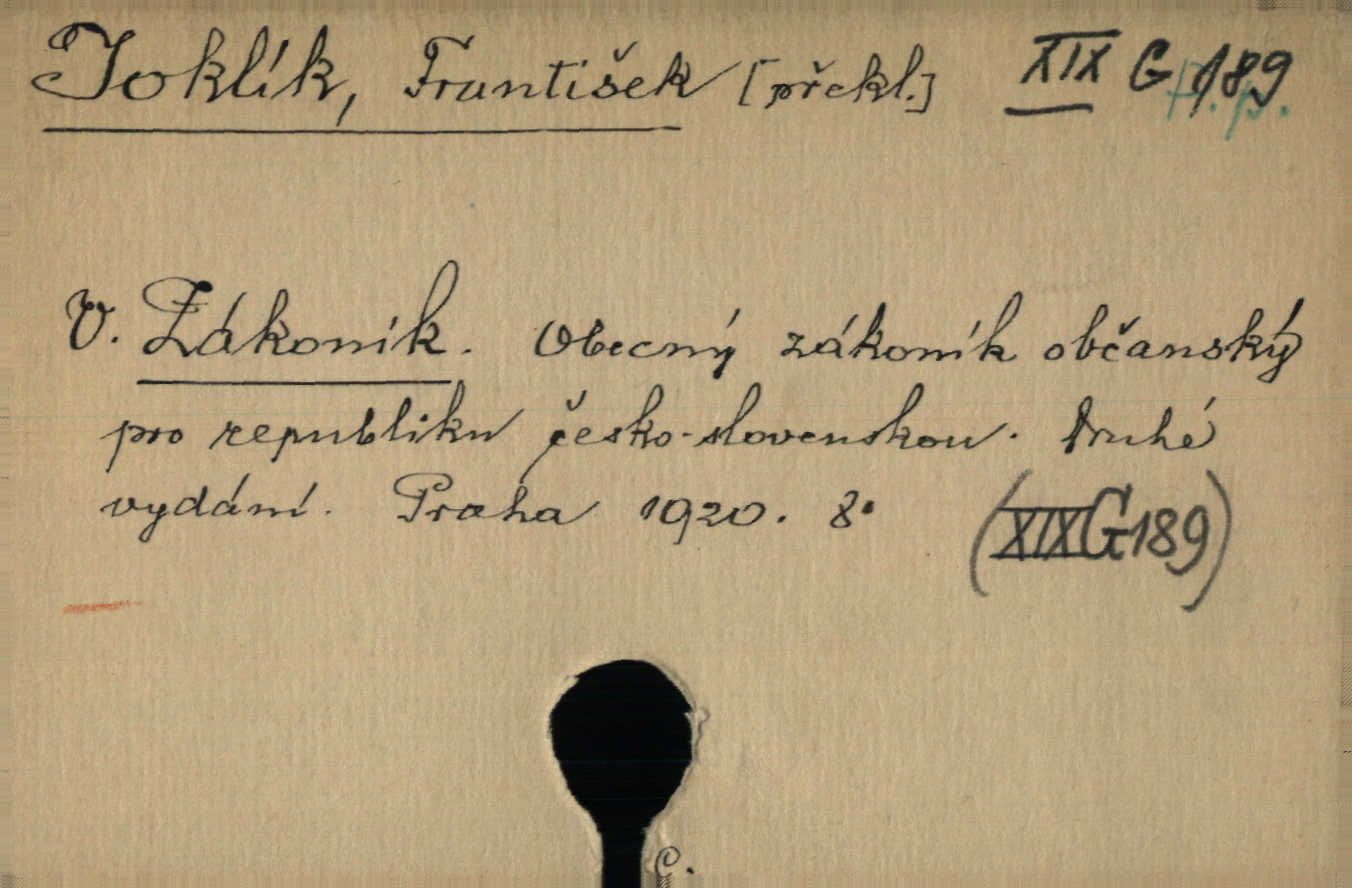 Joklík, František [překl.] XIX G 189
V. Zákoník. Obecný zákoník občanský
pro republiku česko-slovenskou. Druhé
vydání. Praha 1920. 8°
(XIXG189)
C.